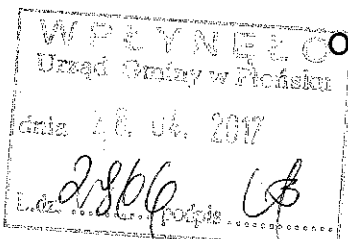 WPŁYNĘŁO
Urząd Gminy w Płońsku
dnia 28. 04. 2017
L.dz. podpis